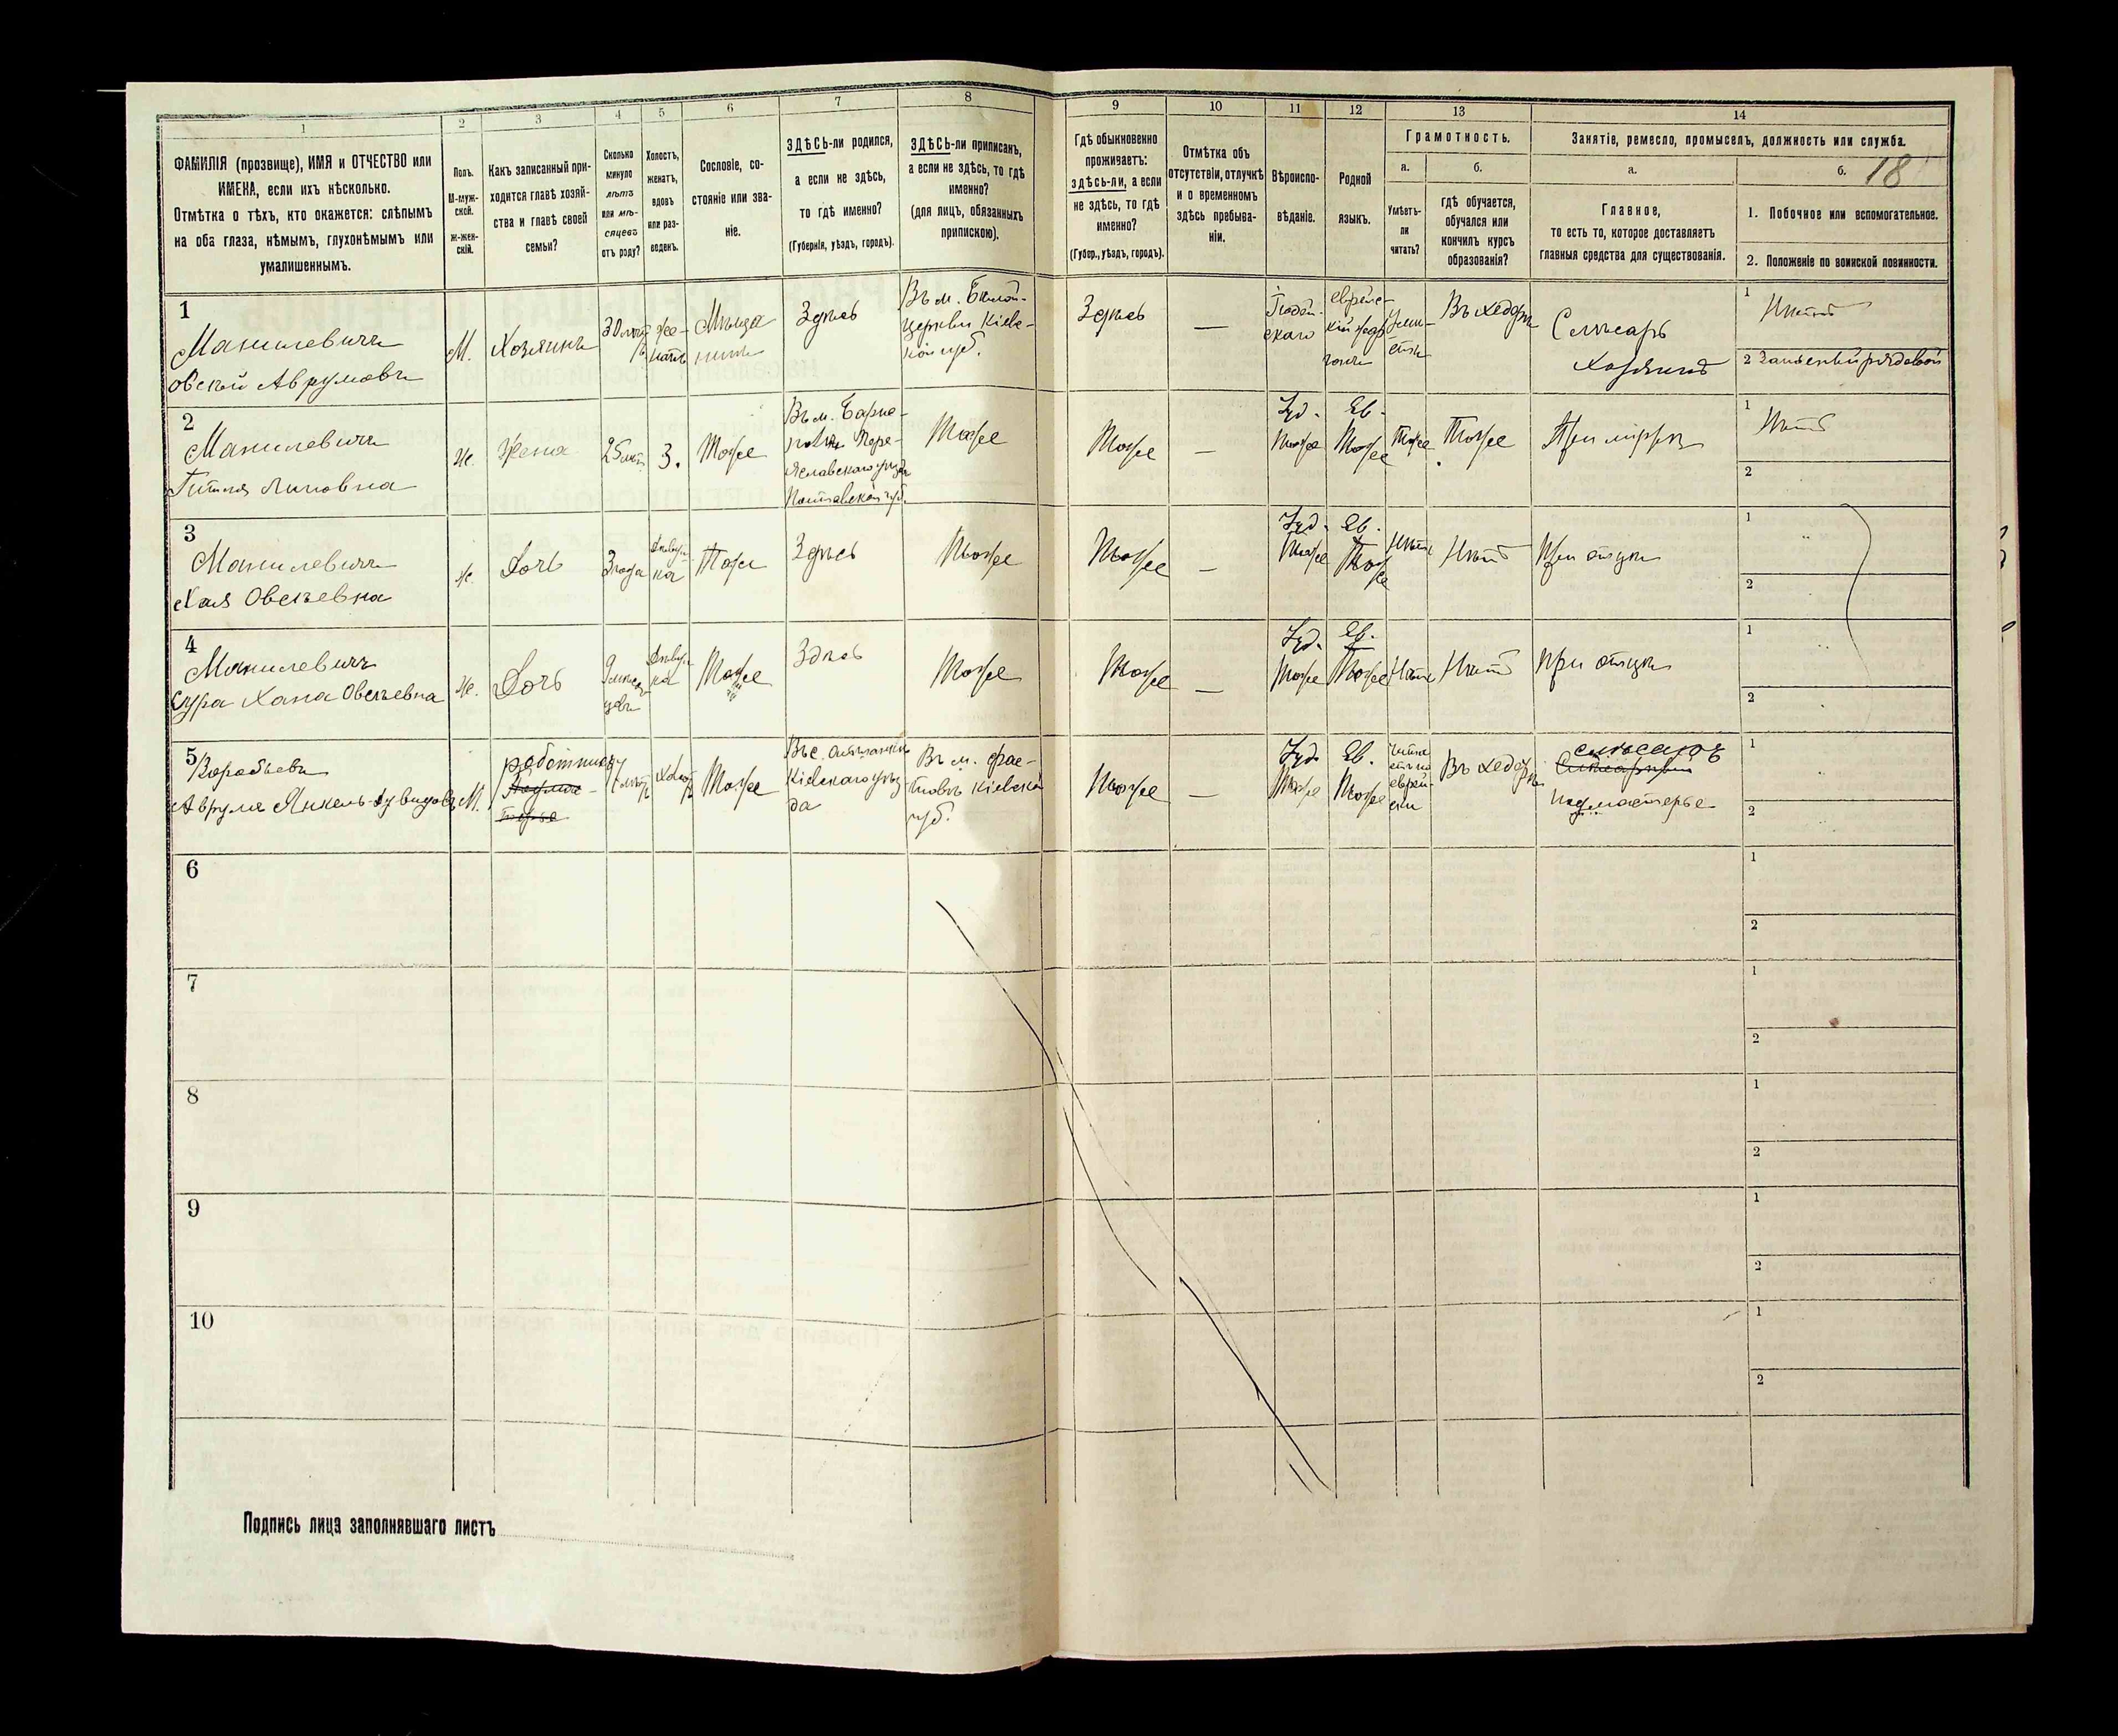 1
2
3
4
5
6
7
8
9
10
11
12
13
14
ФАМИЛІЯ (прозвище), ИМЯ и ОТЧЕСТВО или
ИМЕНА, если ихъ нѣсколько.
Отмѣтка о тѣхъ, кто окажется: слѣпымъ
на оба глаза, нѣмымъ, глухонѣмымъ или
умалишеннымъ.
Полъ.
М-муж-
ской.
Ж-жен-
скій.
Какъ записанный при-
ходится главѣ хозяй-
ства и главѣ своей
семьи?
Сколько
минуло
лѣтъ
или мѣ-
сяцевъ
отъ роду?
Холостъ,
женатъ,
вдовъ
или раз-
веденъ.
Сословіе, со-
стояніе или зва-
ніе.
ЗДѢСЬ-ли родился,
а если не здѣсь,
то гдѣ именно?
(Губернія, уѣздъ, городъ).
ЗДѢСЬ-ли приписанъ,
а если не здѣсь, то гдѣ
именно?
(для лицъ, обязанныхъ
припискою).
Гдѣ обыкновенно
проживаетъ:
здѣсь-ли, а если
не здѣсь, то гдѣ
именно?
(Губер., уѣздъ, городъ).
Отмѣтка объ
отсутствіи, отлучкѣ
и о временномъ
здѣсь пребыва-
ніи.
Вѣроиспо-
вѣданіе.
Родной
языкъ.
Грамотность.
а.
Умѣетъ-
ли
читать?
б.
гдѣ обучается,
обучался или
кончилъ курсъ
образованія?
Занятіе, ремесло, промыселъ, должность или служба.
а.
Главное,
то есть то, которое доставляетъ
главныя средства для существованія.
б.
18
1. Побочное или вспомогательное.
2. Положеніе по воинской повинности.
1
Манилевичъ
Овсей Аврумовъ
М.
Хозяинъ
30 лѣтъ
же-
натъ
Мѣща
нинъ
Здѣсь
Въ м. Бѣлой-
церкви Кіевс-
кой губ.
Здѣсь
—
Іюдей-
скаго
еврейс-
кій
Въ хедерѣ
Слѣсарь
Хозяинъ
1
Нѣтъ
2
2
Манилевичъ
Гитля
Ж.
Жена
25 лѣтъ
З.
Тоже
Въ м.
Пере-
яславскаго уѣзда
Полтавской губ.
Тоже
Тоже
—
Іуд.
Тоже
Ев.
Тоже
Тоже
Тоже
При мужѣ
1
Нѣтъ
2
3
Манилевичъ
Хая Овсѣевна
Ж.
Дочь
3 года
Дѣвуш-
ка
Тоже
Здѣсь
Тоже
Тоже
—
Іуд.
Тоже
Ев.
Тоже
Нѣтъ
Нѣтъ
При отцѣ
1
2
4
Манилевичъ
Сура Хана Овсѣевна
Ж.
Дочь
9 мѣся
цевъ
Дѣвуш
ка
Тоже
Здѣсь
Тоже
Тоже
—
Іуд.
Тоже
Ев.
Тоже
Нѣтъ
Нѣтъ
При отцѣ
1
2
5
Воробьевъ
Аврумъ Янкель-Дувидовъ
М.
работникъ
Холос
Тоже
Въ с.
Кіевскаго уѣз-
да
Въ м. Фас-
товъ Кіевской
губ.
Тоже
—
Іуд.
Тоже
Ев.
Тоже
Въ хедерѣ
слѣсарь
подмастерье
1
2
6
1
2
7
1
2
8
1
2
9
1
2
10
1
2
Подпись лица заполнявшаго листъ